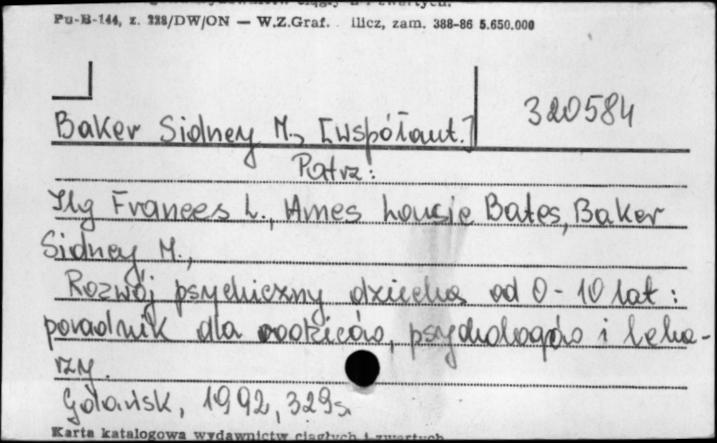 Pu-B-144, z. 228/DW/ON — W.Z.Graf. ilicz, zam. 388-86 5.650.000
320584
Baker Sidney M., [współaut.]
Patrz:
Ilg Frances L., Ames Lousie Bates, Baker
Sidney M.,
Rozwój psychiczny dziecka od 0-10 lat:
poradnik dla rodziców, psychologów i leka-
rzy.
Gdańsk, 1992, 329s.
Karta katalogowa wydawnictw ciągłych i zwartych